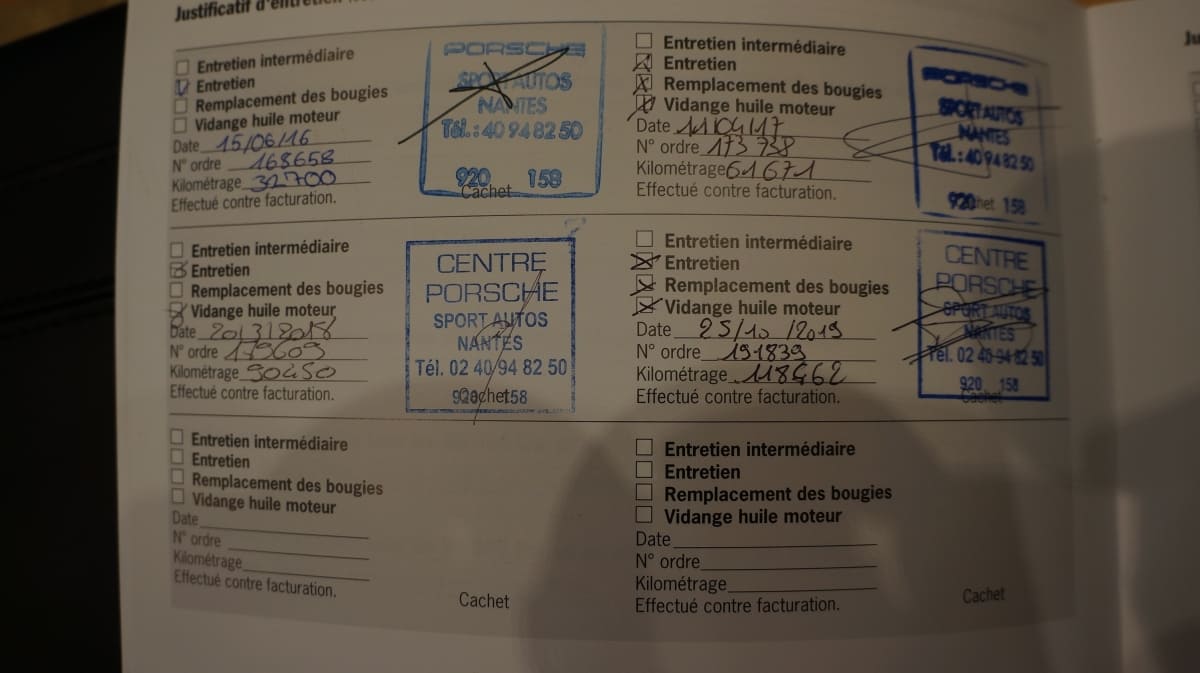 Justificatif d'entretien
Entretien intermédiaire
Entretien
Remplacement des bougies
Vidange huile moteur
Date 15/06/16
N° ordre 168658
Kilométrage 32700
Effectué contre facturation.
PORSCHE
SPORT AUTOS
NANTES
Tél.: 40 94 82 50
920 158
Cachet
Entretien intermédiaire
Entretien
Remplacement des bougies
Vidange huile moteur
Date 11/04/17
N° ordre 173 738
Kilométrage 61671
Effectué contre facturation.
PORSCHE
SPORT AUTOS
NANTES
Tél.: 40 94 82 50
920 158
Entretien intermédiaire
Entretien
Remplacement des bougies
Vidange huile moteur
Date 20/3/2018
N° ordre 179609
Kilométrage 90450
Effectué contre facturation.
CENTRE
PORSCHE
SPORT AUTOS
NANTES
Tél. 02 40 94 82 50
920 158
Cachet
Entretien intermédiaire
Entretien
Remplacement des bougies
Vidange huile moteur
Date 25/10/2019
N° ordre 191839
Kilométrage 118462
Effectué contre facturation.
CENTRE
PORSCHE
SPORT AUTOS
NANTES
Tél. 02 40 94 82 50
920 158
Cachet
Entretien intermédiaire
Entretien
Remplacement des bougies
Vidange huile moteur
Date
N° ordre
Kilométrage
Effectué contre facturation.
Cachet
Entretien intermédiaire
Entretien
Remplacement des bougies
Vidange huile moteur
Date
N° ordre
Kilométrage
Effectué contre facturation.
Cachet